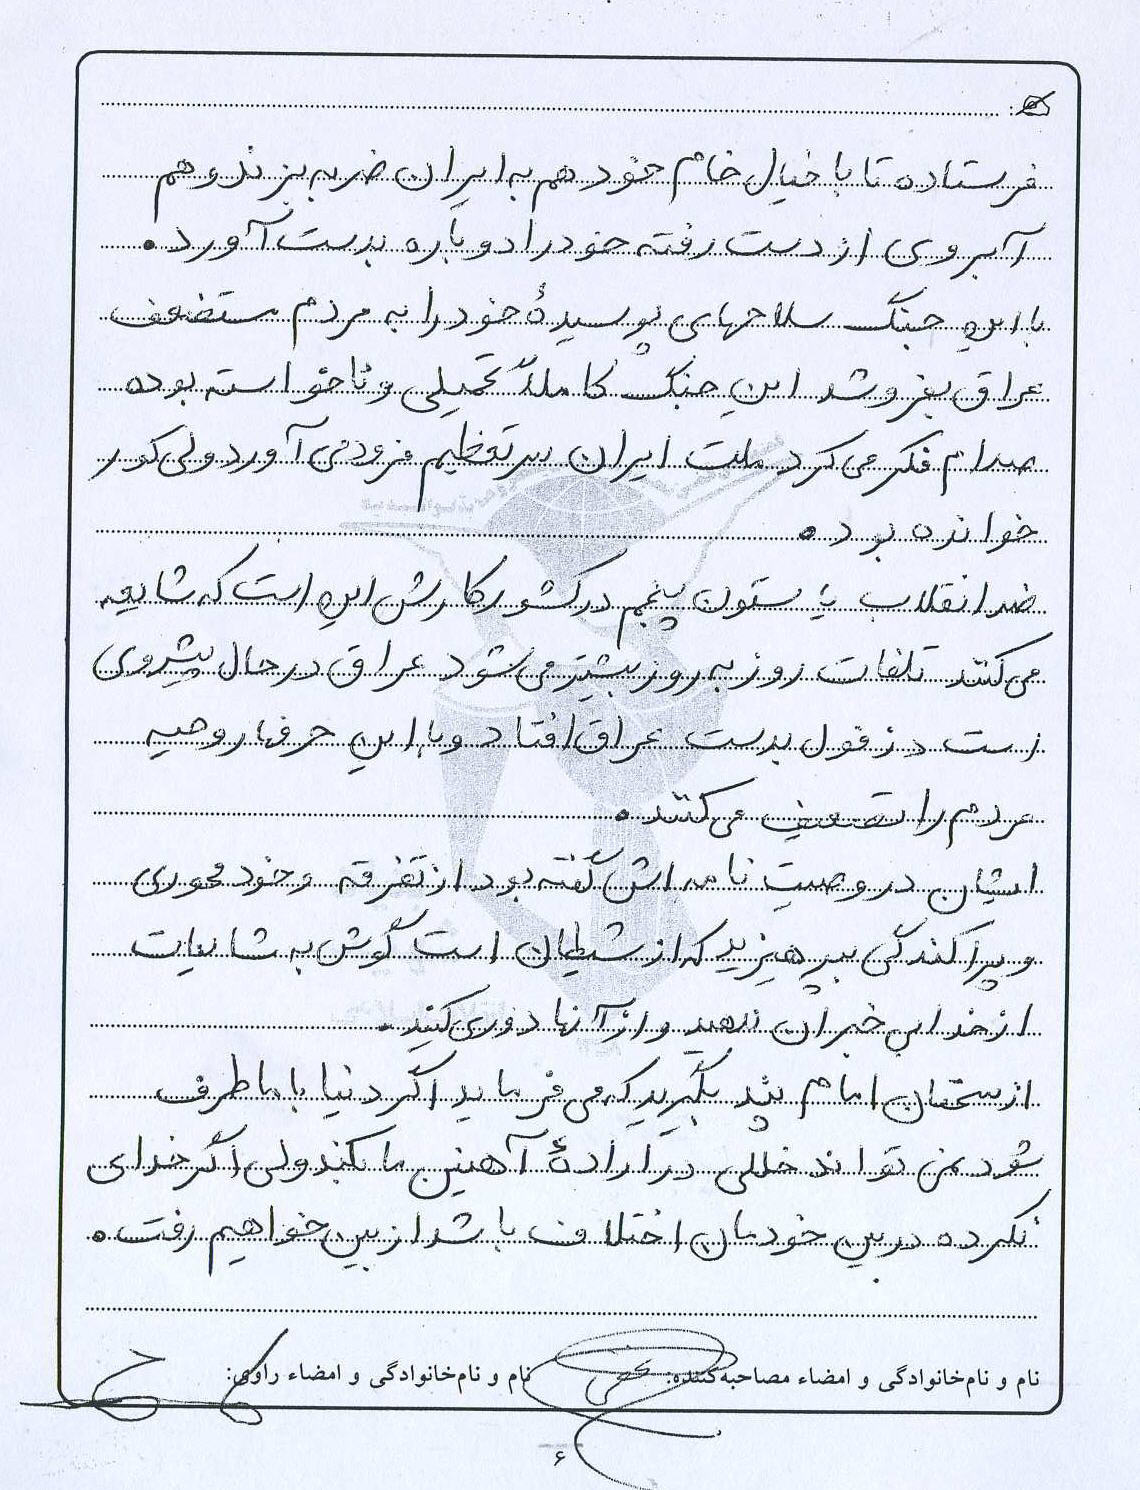 فرستاده تا با خیال خام خود هم به ایران ضربه بزند و هم
آبروی از دست رفته خود را دوباره بدست آورد.
با این جنگ سلاحهای پوسیدهٔ خود را به مردم مستضعف
عراق بفروشد این جنگ کاملاً تحمیلی و ناخواسته بوده
صدام فکر می کرد ملت ایران سر تعظیم فرود می آورد ولی کور
خوانده بود.
ضد انقلاب یا ستون پنجم در کشور کارش این است که شایعه
می کنند تلفات روز به روز بیشتر می شود عراق در حال پیشروی
است دزفول بدست عراق افتاد و با این حرفها روحیه
مردم را تضعیف می کنند.
ایشان در وصیت نامه اش گفته بود از تفرقه و خود محوری
و پراکندگی بپرهیزید که از شیطان است گوش به شایعات
از خدا بی خبران ندهید و از آنها دوری کنید.
از سخنان امام پند بگیرید که می فرماید اگر دنیا با ما طرف
شود نمی تواند خللی در ارادهٔ آهنین ما بکند ولی اگر خدای
نکرده در بین خودمان اختلاف باشد از بین خواهیم رفت.
نام و نام‌خانوادگی و امضاء مصاحبه‌کننده: نام و نام‌خانوادگی و امضاء راوی:
۶